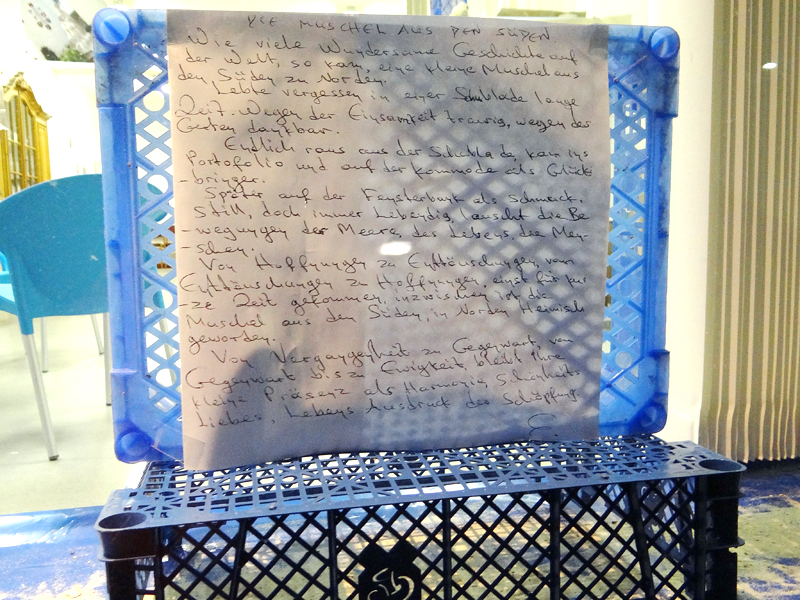 DIE MUSCHEL AUS DEN SÜDEN.
Wie viele Wundersame Geschichte auf
der Welt, so kam, eine kleine Muschel aus
den Süden zu Norden.
Lebte vergessen in einer Schublade lange
Zeit. Wegen der Einsamkeit traurig, wegen der
Gesten dankbar.
Endlich raus aus der Schublade, kam ins
Portofolio und auf der Kommode als Glücks
-bringer.
Später auf der Fensterbank als Schmuck.
Still, doch immer Lebendig, lauscht die Be
-wegungen der Meere, des Lebens, die Men-
-schen.
Von Hoffnungen zu Enttäuschungen, vom
Enttäuschungen zu Hoffnungen, einst für kur
-ze Zeit gekommen, inzwischen ist die
Muschel aus den Süden, in Norden Heimisch
geworden.
Von Vergangenheit zu Gegenwart, von
Gegenwart bis zu Ewigkeit, bleibt ihre
kleine Präsenz als Harmonie, Schönheits
Liebes, Lebens Ausdruck der Schöpfung.
E.